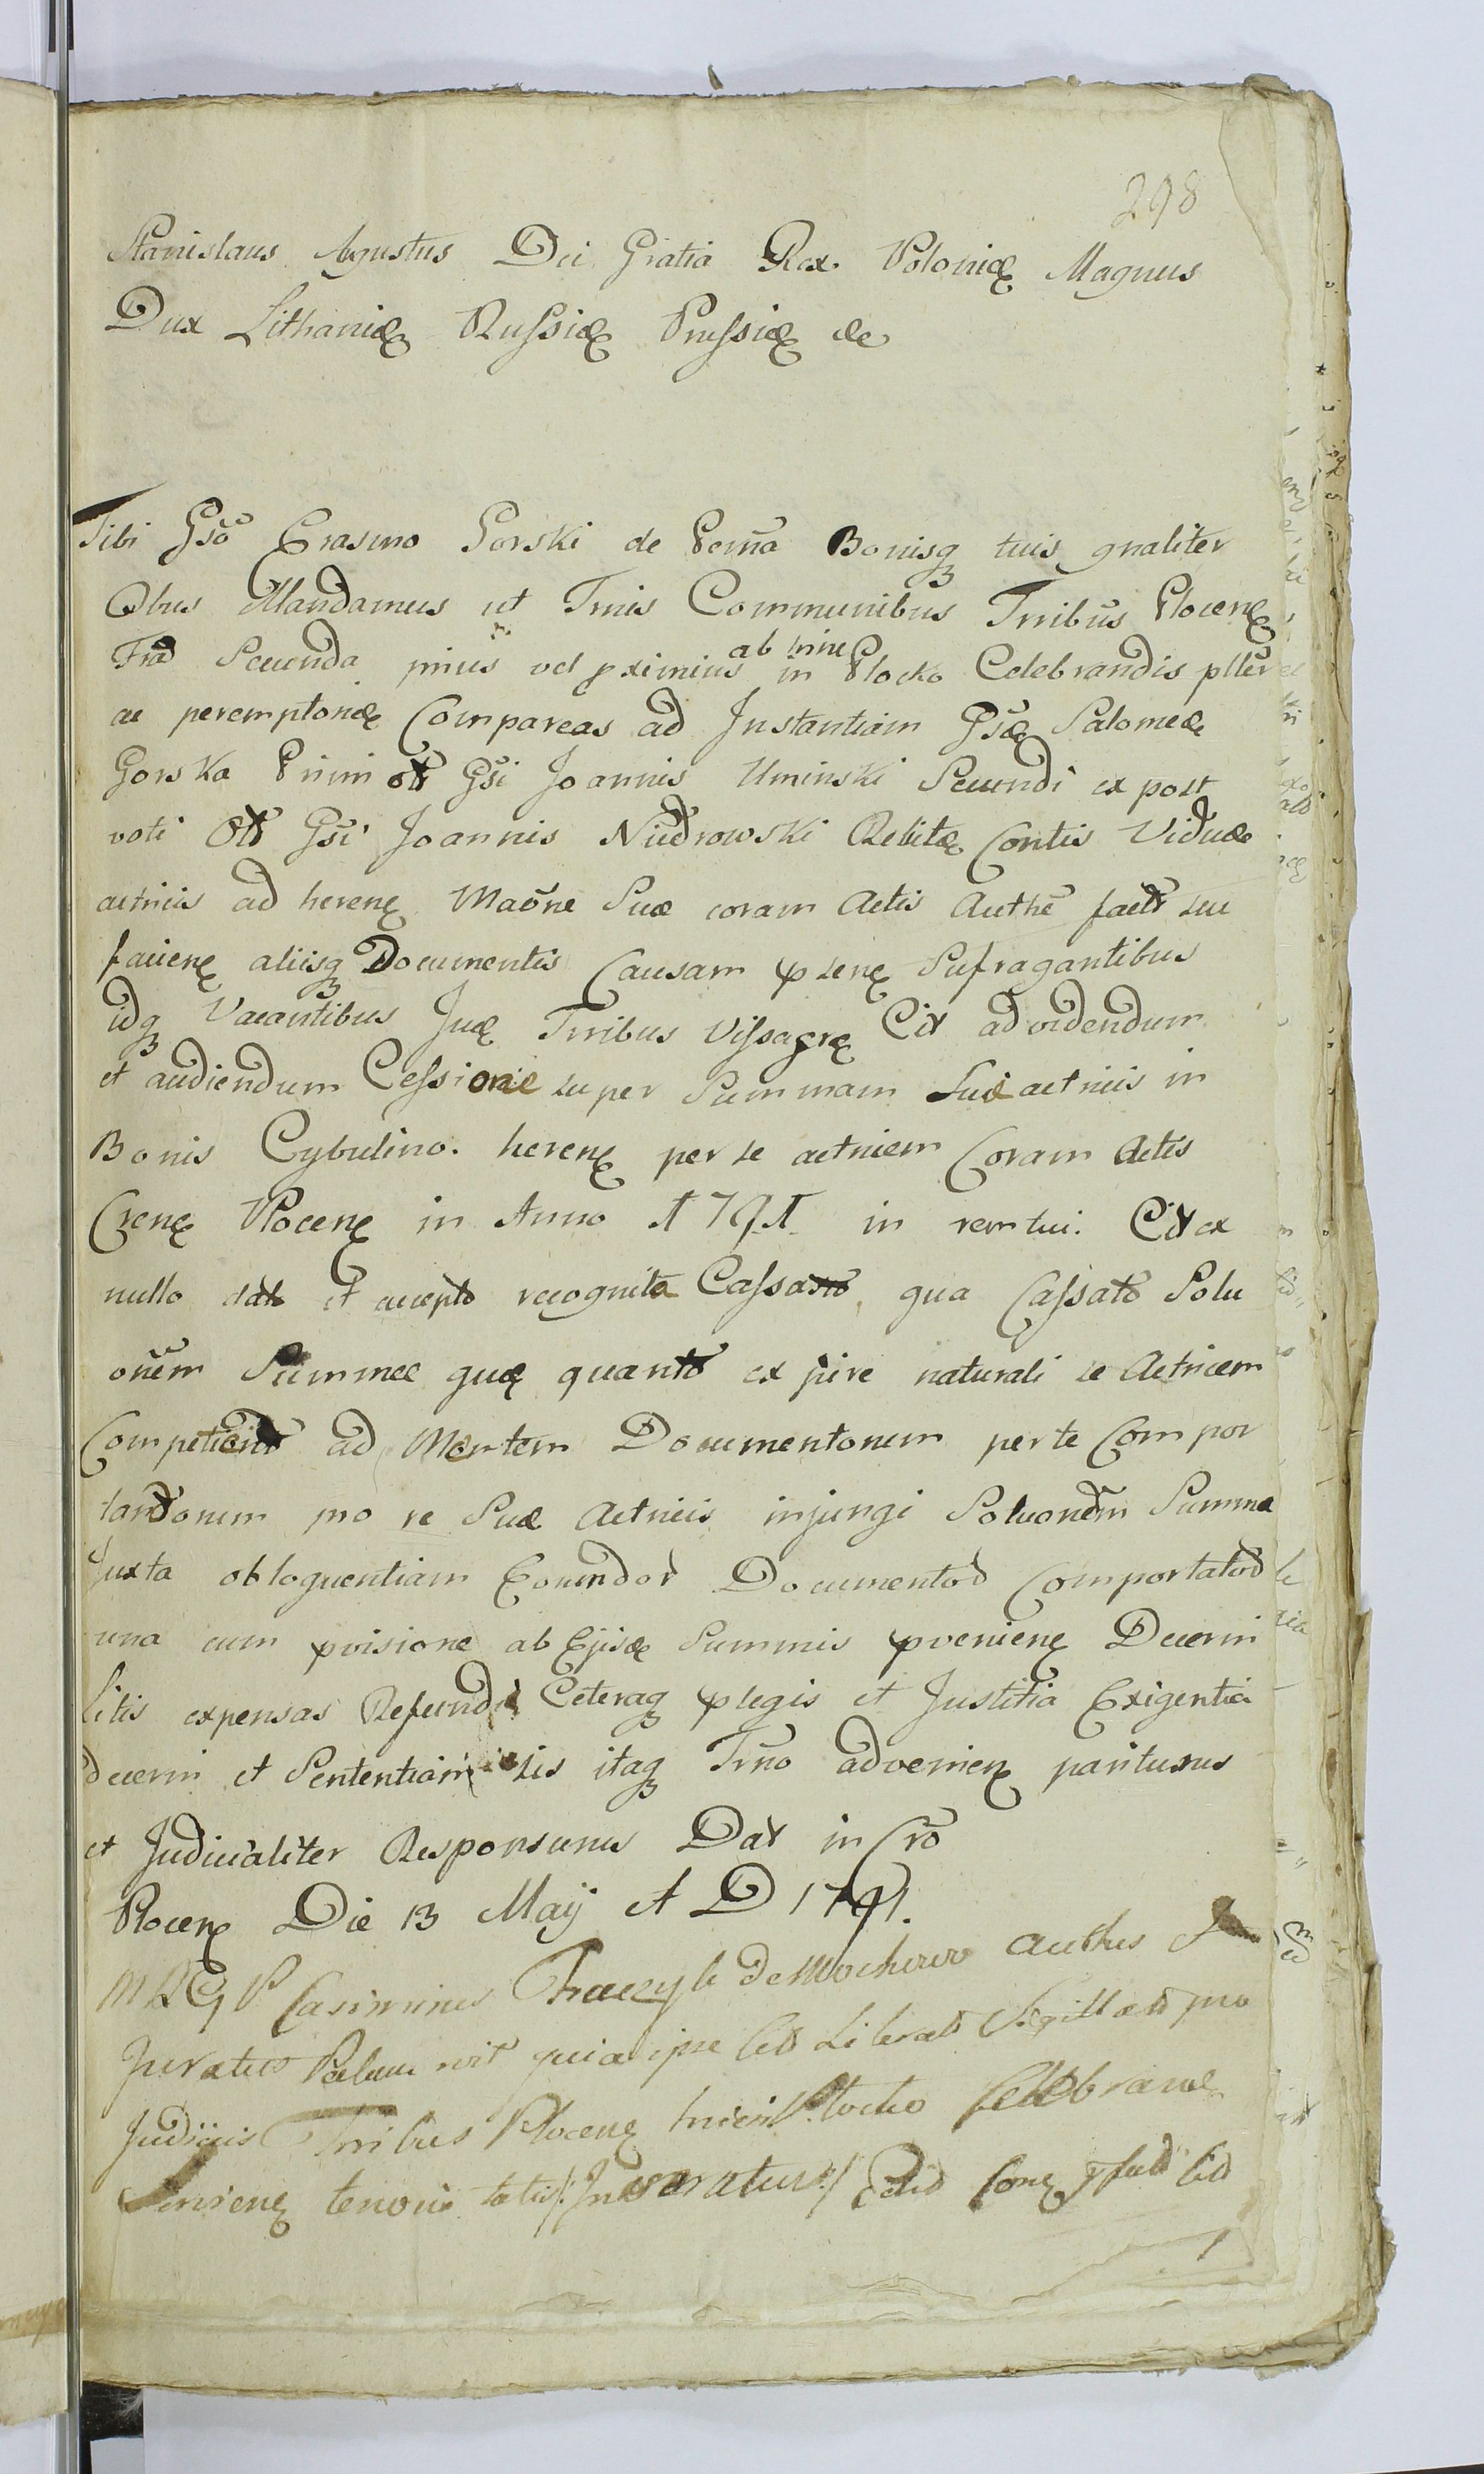 298
Stanislaus Agustus Dei Gratia Rex Poloniæ Magnus
Dux Lithaniæ Russiæ Prussiæ &c
Tibi Gso Erasmo Gorski de Perna Bonisq tuis gnaliter
Obus Mandamus ut Tmis Communibus Trribus Plocen
Fra Secunda prius vel pximius ab hinc in Plocko Celebrandis plter
ac peremptorie Compareas ad Instantiam Gsæ Salomeæ
Gorska Primi ol Gsi Joannis Uminski Secundi ex post
voti Ol Gsi Joannis Niedrowski Relitæ Contis Viduæ
actricis ad heren Maone Suæ coram Actis Authe fact seu
facien aliisq Documentis Causam psen Sufragantibus
idq Vacantibus Jux Trribus Cit ad videndum
et audiendum Cessione super Summam Suæ actricis in
Bonis Cybulino. heren per se actricem Coram Actis
Cren Plocen in Anno 1791 in rem tui. Cit ex
nullo dato et accepto recognita Cassato, qua Cassato Solu
onem Summæ quæ quanto ex jure naturali se Actricem
Competient ad Mentem Documentorum per te Compor
tandorum pro re Suæ Actricis injungi Soluonem Summa
Juxta obloquentiam Eorundor Documentor Comportator
una cum pvisione ab Ejisde Summis pvenien Decerni
Litis expensas Refundi Ceteraq plegis et Justitia Exigentia
decerni et Sententiari sis itaq Trno advenien pariturus
et Judicialiter Responsurus Dat in Cro
Plocen Die 13 Maij A D 1791.
M R G P Casimirus de Mochowo authus
Juratus Palam quia ipse Lit Sigillat pro
Judiciis Trribus Plocen hicin Plocko Celebran
tenoris talis /: Inseratur :/ Cone Lit